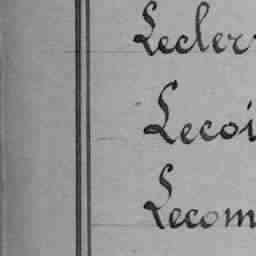 Lecler
Lecoi
Lecom